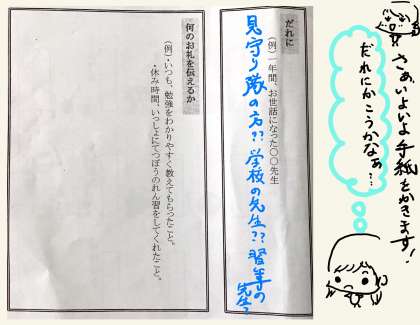 さぁいよいよ手紙をかきます!
だれにかこうかなぁ…
だれに
(例)一年間、お世話になった〇〇先生
見守り隊の方??学校の先生??習字の
先生?
何のお礼を伝えるか
(例)・いつも、勉強をわかりやすく教えてもらったこと。
・休み時間、いっしょにてつぼうのれん習をしてくれたこと。